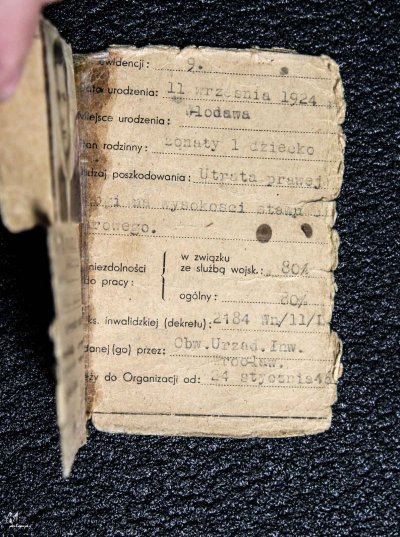 ewidencji: 9.
ata urodzenia: 11 września 1924
Miejsce urodzenia: Włodawa
an rodzinny: żonaty 1 dziecko
dzaj poszkodowania: Utrata prawej
ogi na wysokości
rowego.
w związku
niezdolności ze służbą wojsk.: 80%
do pracy:
ogólny: 80%
ks. inwalidzkiej (dekretu): 2184 Wn/11/L
danej (go) przez: Obw. Urząd. Inw.
rocław.
eży do Organizacji od: 24 stycznia 48